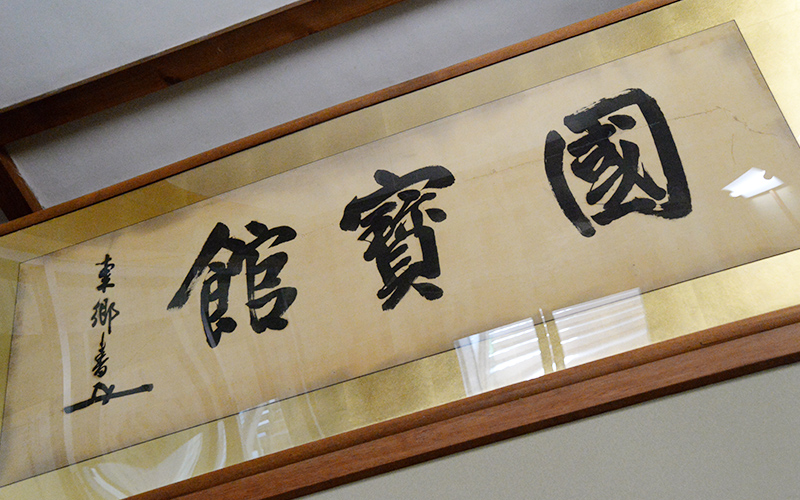 國寶館
東郷書